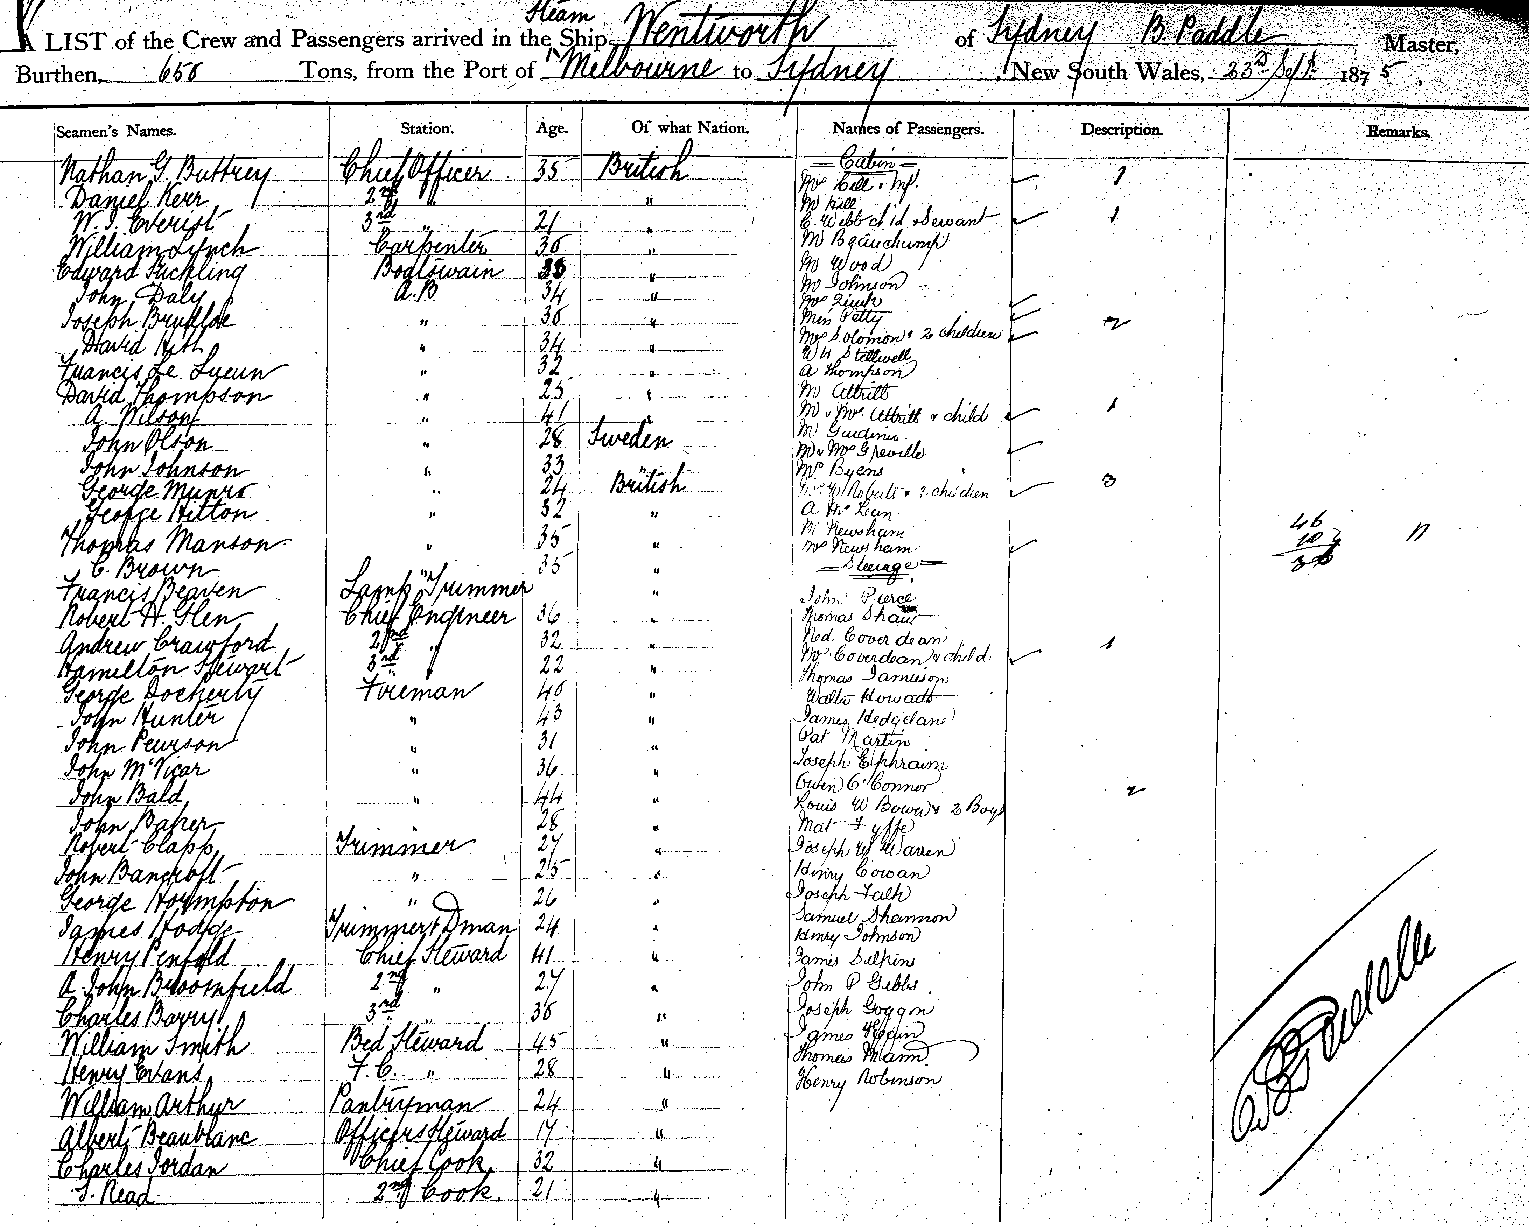 Steam
A LIST of the Crew and Passengers arrived in the Ship Wentworth of Sydney B Paddle Master,
Burthen, 650 Tons, from the Port of Melbourne to Sydney New South Wales, 23rd Sept 1875
Seamen's Names. Station. Age. Of what Nation. Names of Passengers. Description. Remarks.
Nathan G. Buttrey Chief Officer 35 British Cabin
Mrs Hill & Inft. 1
Daniel Kerr 2nd " "
Mr Hill
W. J. Everist 3rd " 21 "
C. Webb child & Servant 1
William Lynch Carpenter 30 "
Mr Beauchamp
Edward Boatswain 38 "
Mr Wood
John Daly A.B. 34 "
Mr Johnson
Joseph " 30 "
Mrs
Miss Petty 2
David " 34 "
Mrs Solomon & 2 children
W H Stillwell
Francis Le " 32 "
A Thompson
David Thompson " 25 "
Mr Attritt
A. Wilson " 41 "
Mr & Mrs Attritt & child 1
John Olson " 28 Sweden
Mr Gardiner
Mr & Mrs Greville
John Johnson " 33 "
Mr Byens
George Munro " 24 British
W Roberts & 3 children 3
George Hilton " 32 "
A McLean
46
Thomas Manson " 35 "
Mr Newsham
10
Mrs Newsham
36
C. Brown " 35 "
Steerage
Francis Beaven Lamp Trimmer "
John Pierce
Robert H. Glen Chief Engineer 36 "
Thomas Shaw
Andrew Crawford 2nd " 32 "
Ned Coverdean
Hamilton Stewart 3rd " 22 "
Mrs Coverdean & child 1
Thomas Jamieson
George Docherty Fireman 40 "
Walter Howard
John Hunter " 43 "
James Hedgeland
John Pearson " 31 "
Pat Martin
John McVicar " 36 "
Joseph Ephraim
Owen O'Connor
John Bald " 44 "
Louis W Bower & 2 Boys 2
John Baker " 28 "
Mat Fyffe
Robert Clapp Trimmer 27 "
Joseph W Waren
John Bancroft " 25 "
Henry Cowan
George Hormpton " 26 "
Joseph Falk
James Hodge Trimmer & Dman 24 "
Samuel Shannon
Henry Johnson
Henry Penfold Chief Steward 41 "
James Dilkins
A. John Broomfield 2nd " 27 "
John P Gibbs
Charles Barry 3rd " 30 "
Joseph Goggon
William Smith Bed Steward 45 "
James
Thomas Mann
Henry Evans F.C. " 28 "
Henry Robinson
William Arthur Pantryman 24 "
Albert Beaublanc Officers Steward 17 "
Charles Jordan Chief Cook 32 "
Read 2nd Cook 21 "
B Paddle